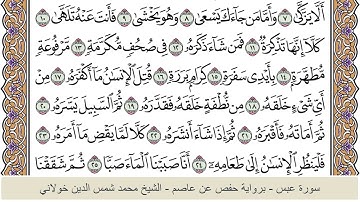 أَلَّا يَزَّكَّىٰ ٧ وَأَمَّا مَن جَآءَكَ يَسْعَىٰ ٨ وَهُوَ يَخْشَىٰ ٩ فَأَنتَ عَنْهُ تَلَهَّىٰ ١٠
كَلَّآ إِنَّهَا تَذْكِرَةٌ ١١ فَمَن شَآءَ ذَكَرَهُۥ ١٢ فِى صُحُفٍ مُّكَرَّمَةٍ ١٣ مَّرْفُوعَةٍ
مُّطَهَّرَةٍۭ ١٤ بِأَيْدِى سَفَرَةٍ ١٥ كِرَامٍۭ بَرَرَةٍ ١٦ قُتِلَ ٱلْإِنسَٰنُ مَآ أَكْفَرَهُۥ ١٧ مِنْ
أَىِّ شَىْءٍ خَلَقَهُۥ ١٨ مِن نُّطْفَةٍ خَلَقَهُۥ فَقَدَّرَهُۥ ١٩ ثُمَّ ٱلسَّبِيلَ يَسَّرَهُۥ ٢٠
ثُمَّ أَمَاتَهُۥ فَأَقْبَرَهُۥ ٢١ ثُمَّ إِذَا شَآءَ أَنشَرَهُۥ ٢٢ كَلَّا لَمَّا يَقْضِ مَآ أَمَرَهُۥ ٢٣
فَلْيَنظُرِ ٱلْإِنسَٰنُ إِلَىٰ طَعَامِهِۦٓ ٢٤ أَنَّا صَبَبْنَا ٱلْمَآءَ صَبًّا ٢٥ ثُمَّ شَقَقْنَا
سورة عبس - برواية حفص عن عاصم - الشيخ محمد شمس الدين خولاني